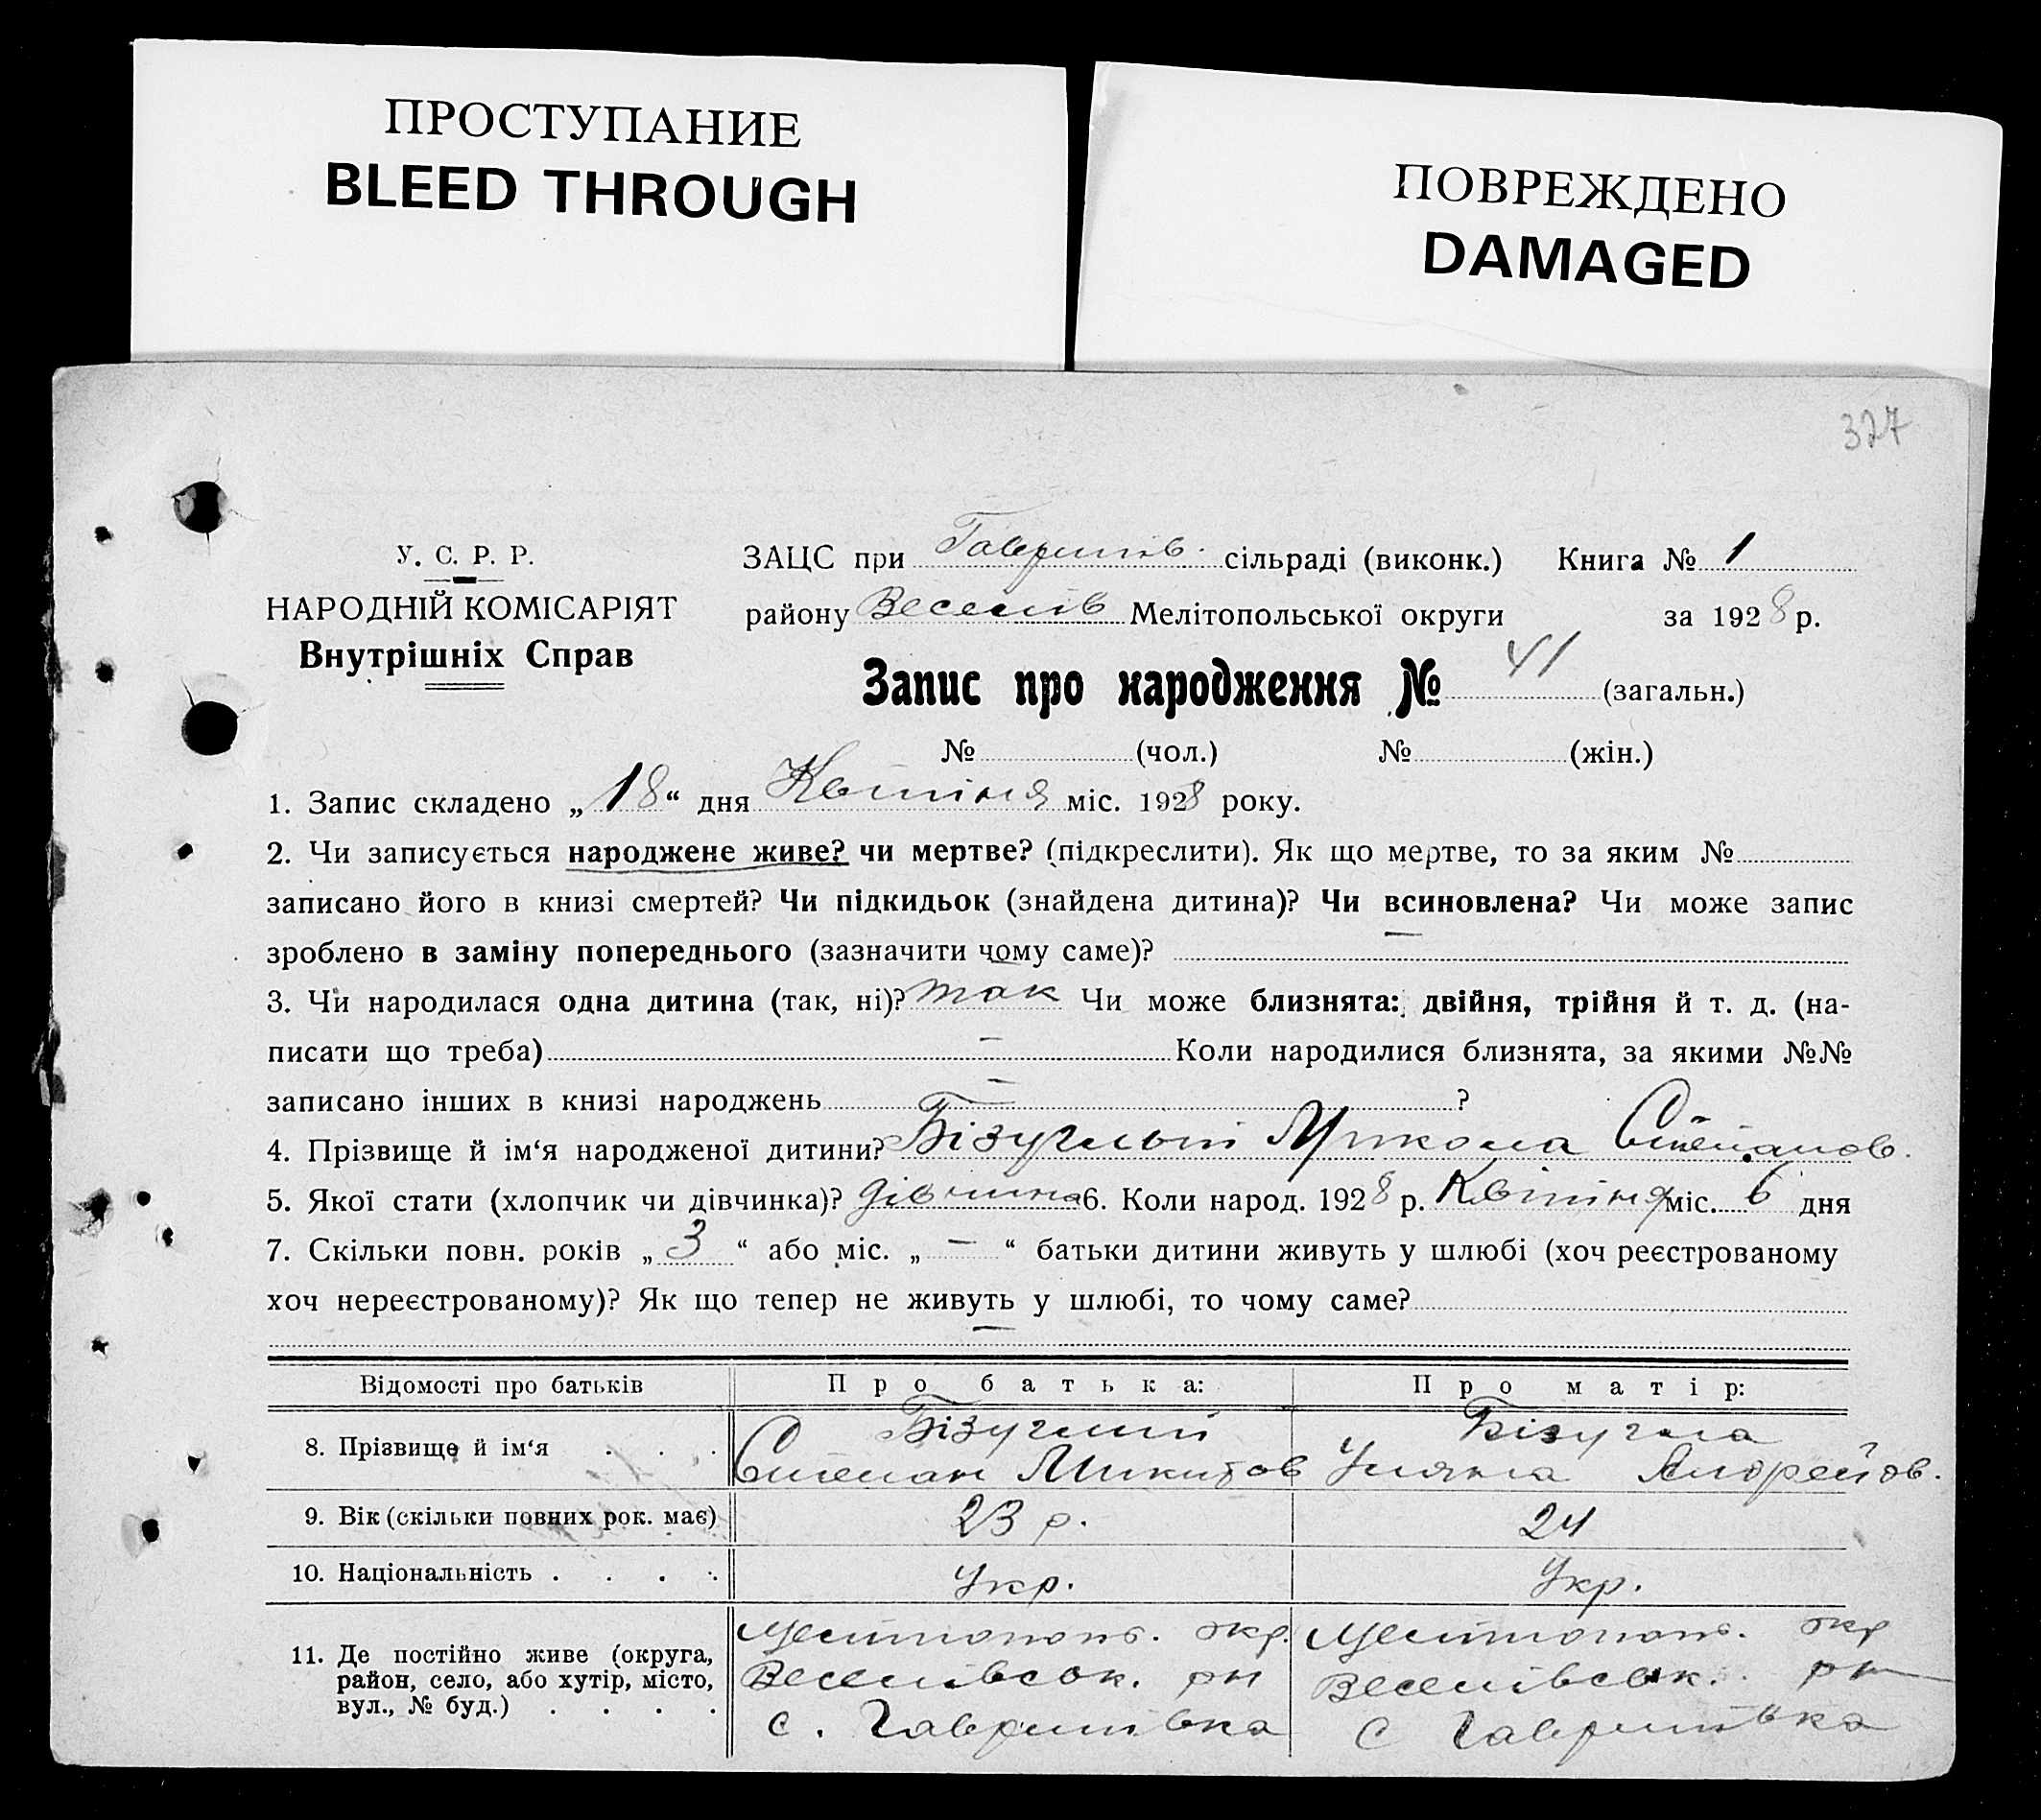 ПРОСТУПАНИЕ
BLEED THROUGH
ПОВРЕЖДЕНО
DAMAGED
327
У. С. Р. Р.
НАРОДНІЙ КОМІСАРІЯТ
Внутрішніх Справ
ЗАЦС при Гаврилів. сільраді (виконк.) Книга № 1
району Веселів Мелітопольської округи за 1928 р.
Запис про народження № 41 (загальн.)
№ (чол.) № (жін.)
1. Запис складено „18“ дня Квітіня міс. 1928 року.
2. Чи записується народжене живе? чи мертве? (підкреслити). Як що мертве, то за яким №
записано його в книзі смертей? Чи підкидьок (знайдена дитина)? Чи всиновлена? Чи може запис
зроблено в заміну попереднього (зазначити чому саме)? —
3. Чи народилася одна дитина (так, ні)? так Чи може близнята: двійня, трійня й т. д. (на-
писати що треба) — Коли народилися близнята, за якими №№
записано інших в книзі народжень — ?
4. Прізвище й ім‘я народженої дитини? Бізуглый Микола Степанов.
5. Якої стати (хлопчик чи дівчинка)? дівчина 6. Коли народ. 1928 р. Квітіня міс. 6 дня
7. Скільки повн. років „3“ або міс. „—“ батьки дитини живуть у шлюбі (хоч реєстрованому
хоч нереєстрованому)? Як що тепер не живуть у шлюбі, то чому саме?
—
Відомості про батьків Про батька: Про матір:
8. Прізвище й ім‘я . . . Бізуглий Бізугла
Степан Микитов Уляна Андрейов.
9. Вік (скільки повних рок. має) 23 р. 24
10. Національність . . . . Укр. Укр.
11. Де постійно живе (округа, Мелітополь. окр. Мелітополь. окр
район, село, або хутір, місто, Веселівськ. рн Веселівськ. рн
вул., № буд.) . . . . с. Гаврилівка с Гаврилівка